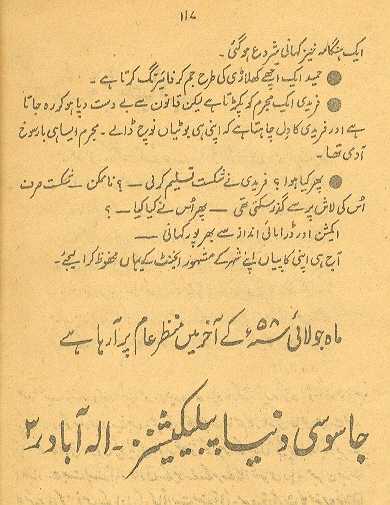 ۱۱۷
ایک ہنگامہ خیز کہانی شروع ہو گئی۔
● حمید ایک اچھے کھلاڑی کی طرح جم کر فائرنگ کرتا ہے۔
● فریدی ایک مجرم کو پکڑتا ہے لیکن قانون سے بے دست و پا ہو کر رہ جاتا
ہے اور فریدی کا دل چاہتا ہے کہ اپنی ہی بوٹیاں نوچ ڈالے۔ مجرم ایسا ہی بارسوخ
آدمی تھا۔
● پھر کیا ہوا؟ فریدی نے شکست تسلیم کر لی — ؟ ناممکن — شکست صرف
اُس کی لاش پر سے گذر سکتی تھی — پھر اُس نے کیا کیا — ؟
ایکشن اور ڈرامائی انداز سے بھرپور کہانی —
آج ہی اپنی کاپیاں اپنے شہر کے مشہور ایجنٹ کے یہاں محفوظ کرا لیجئے۔
ماہ جولائی ۵۸ء کے آخر میں منظرِ عام پر آ رہا ہے
جاسوسی دنیا پبلیکیشنز۔ الہ آباد ۳